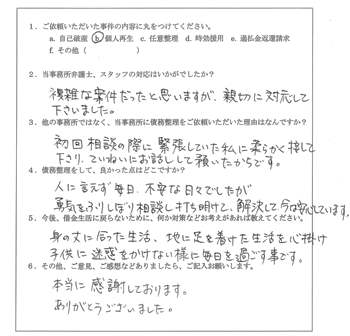 1．ご依頼いただいた事件の内容に丸をつけてください。
a. 自己破産 b. 個人再生 c. 任意整理 d. 時効援用 e. 過払金返還請求
f. その他（ ）
2．当事務所弁護士、スタッフの対応はいかがでしたか？
複雑な案件だったと思いますが、親切に対応して
下さいました。
3．他の事務所ではなく、当事務所に債務整理をご依頼いただいた理由はなんですか？
初回相談の際に緊張していた私に柔らかく接して
下さり、ていねいにお話しして頂いたからです。
4．債務整理をして、良かった点はどこですか？
人に言えず毎日、不安な日々でしたが
勇気をふりしぼり相談し打ち明けと、解決して今は安心しています。
5．今後、借金生活に戻らないために、何か対策などお考えがあれば教えてください。
身の丈に合った生活、地に足を着けた生活を心掛け
子供に迷惑をかけない様に毎日を過ごす事です。
6．その他、ご意見、ご感想などありましたら、ご記入お願いします。
本当に感謝しております。
ありがとうございました。